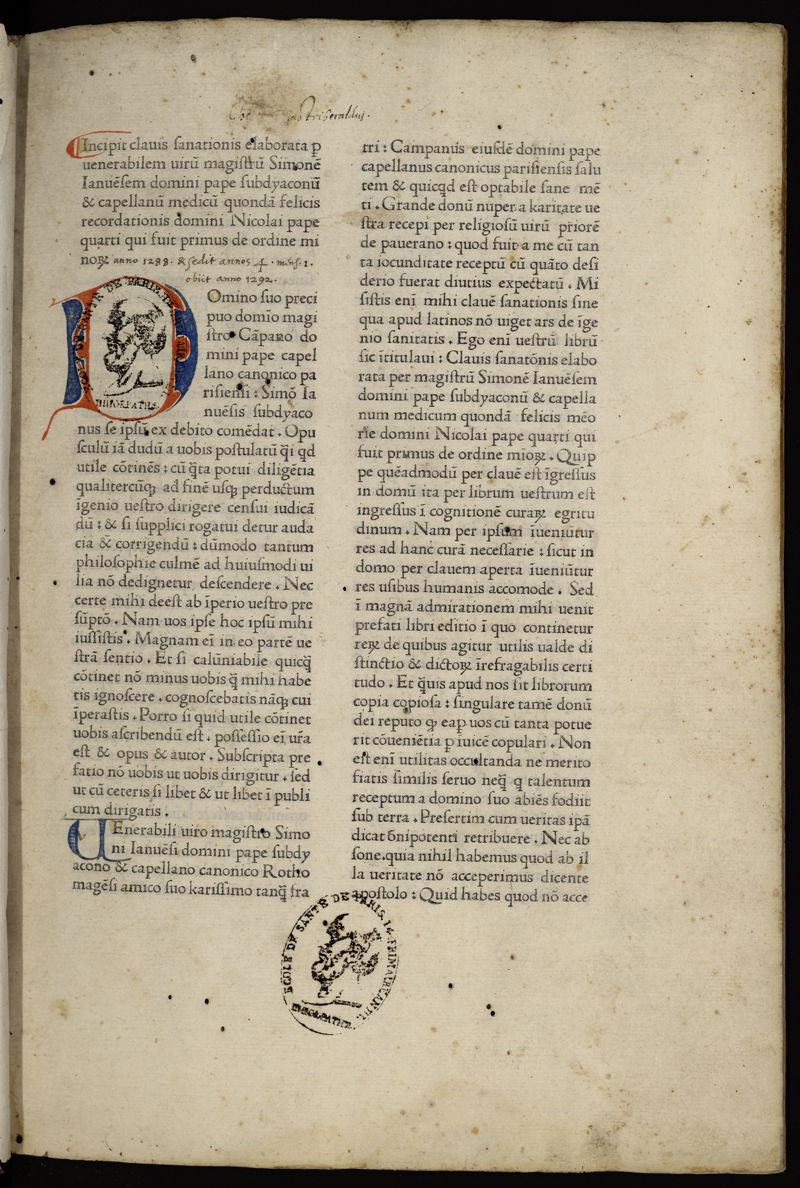 Incipit clauis ſanationis elaborata p
uenerabilem uirū magiſtrū Simonē
Ianuēſem domini pape ſubdyaconū
& capellanū medicū quondā felicis
recordationis domini Nicolai pape
quarti qui fuit primus de ordine mi
noꝝ anno 1288. & ſedit annos 4. menſ. 1.
obiit anno 1292.
Domino ſuo preci
puo domīo magi
ſtro Cāpano do
mini pape capel
lano canonico pa
riſienſi : Simō Ia
nuēſis ſubdyaco
nus ſe ipſū ex debito comēdat . Opu
ſculū iā dudū a uobis poſtulatū q̄i qd
utile cōtinēs : cū q̄ta potui diligētia
qualitercūqꝫ ad finē uſqꝫ perductum
īgenio ueſtro dirigere cenſui iudicā
dū : & ſi ſupplici rogatui detur auda
cia & corrigendū : dūmodo tantum
philoſophie culmē ad huiuſmodi ui
lia nō dedignetur deſcendere . Nec
certe mihi deeſt ab īperio ueſtro pre
ſūptō . Nam uos ipſe hoc ipſū mihi
iuſſiſtis . Magnam eī in eo partē ue
ſtrā ſentio . Et ſi calūniabile quicq̄
cōtinet nō minus uobis q̄ mihi habe
tis ignoſcere . cognoſcebatis nāqꝫ cui
īperaſtis . Porro ſi quid utile cōtinet
uobis aſcribendū eſt . poſſeſſio eī ur̄a
eſt & opus & autor . Subſcripta pre
fatio nō uobis ut uobis dirigitur . ſed
ut cū ceteris ſi libet & ut libet ī publi
cum dirigatis .
UEnerabili uiro magiſtro Simo
ni Ianuēſi domini pape ſubdy
acono & capellano canonico Rotho
magēſi amico ſuo kariſſimo tanq̄ fra
tri : Campanus eiuſdē domini pape
capellanus canonicus pariſienſis ſalu
tem & quicqd eſt optabile ſane mē
ti . Grande donū nuper a karitate ue
ſtra recepi per religioſū uirū priorē
de pauerano : quod fuit a me cū tan
ta iocunditate receptū cū quāto deſi
derio fuerat diutius expectatū . Mi
ſiſtis enī mihi clauē ſanationis ſine
qua apud latinos nō uiget ars de īge
nio ſanitatis . Ego enī ueſtrū librū
ſic ītitulaui : Clauis ſanatōnis elabo
rata per magiſtrū Simonē Ianuēſem
domini pape ſubdyaconū & capella
num medicum quondā felicis mēo
rie domini Nicolai pape quarti qui
fuit primus de ordine mīoꝝ . Quip
pe quēadmodū per clauē eſt īgreſſus
in domū ita per librum ueſtrum eſt
ingreſſus ī cognitionē curaꝝ egritu
dinum . Nam per ipſum īueniūtur
res ad hanc curā neceſſarie : ſicut in
domo per clauem aperta īueniūtur
res uſibus humanis accomode . Sed
ī magnā admirationem mihi uenit
prefati libri editio ī quo continetur
reꝝ de quibus agitur utilis ualde di
ſtinctio & dictoꝝ īrefragabilis certi
tudo . Et q̄uis apud nos ſit librorum
copia copioſa : ſingulare tamē donū
dei reputo qꝫ eap uos cū tanta potue
rit cōueniētia p iuicē copulari . Non
eſt enī utilitas occultanda ne merito
fiatis ſimilis ſeruo neq̄ q talentum
receptum a domino ſuo abiēs fodiit
ſub terra . Preſertim cum ueritas ipā
dicat ōnipotenti retribuere . Nec ab
ſone.quia nihil habemus quod ab il
la ueritate nō acceperimus dicente
apoſtolo : Quid habes quod nō acce
ECOLE DE SANTÉ DE PARIS